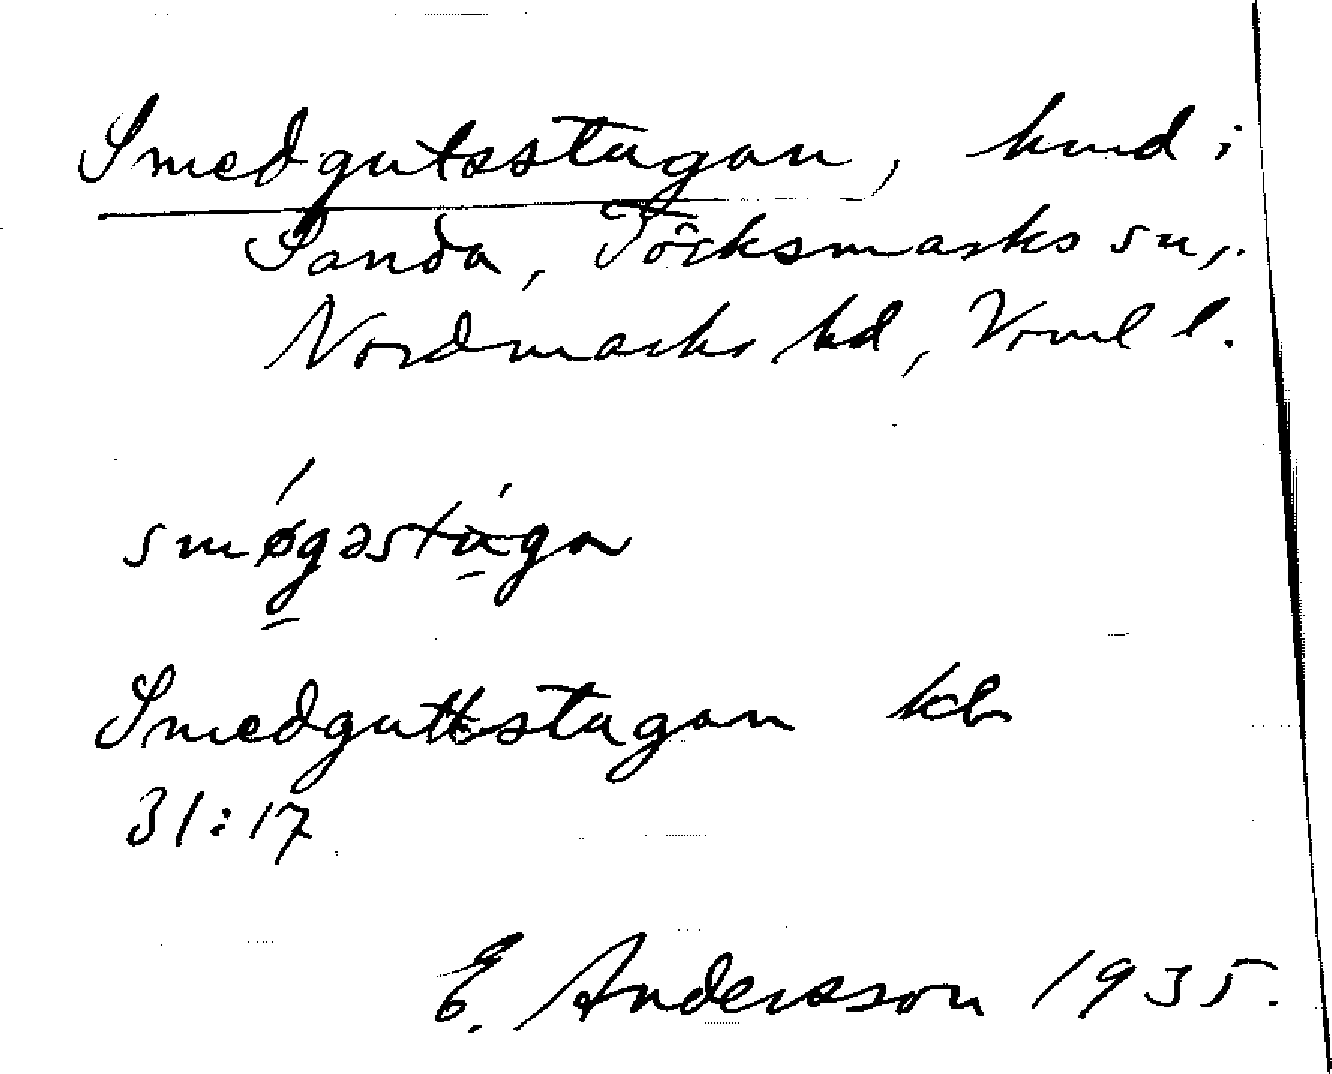 Smedgutsstugan, hmd i
Sanda, Töcksmarks sn,
Nordmarks hd, Vrml l.
smǿgəstúga
Smedguttstugan kb
31:17
E. Andersson 1935.